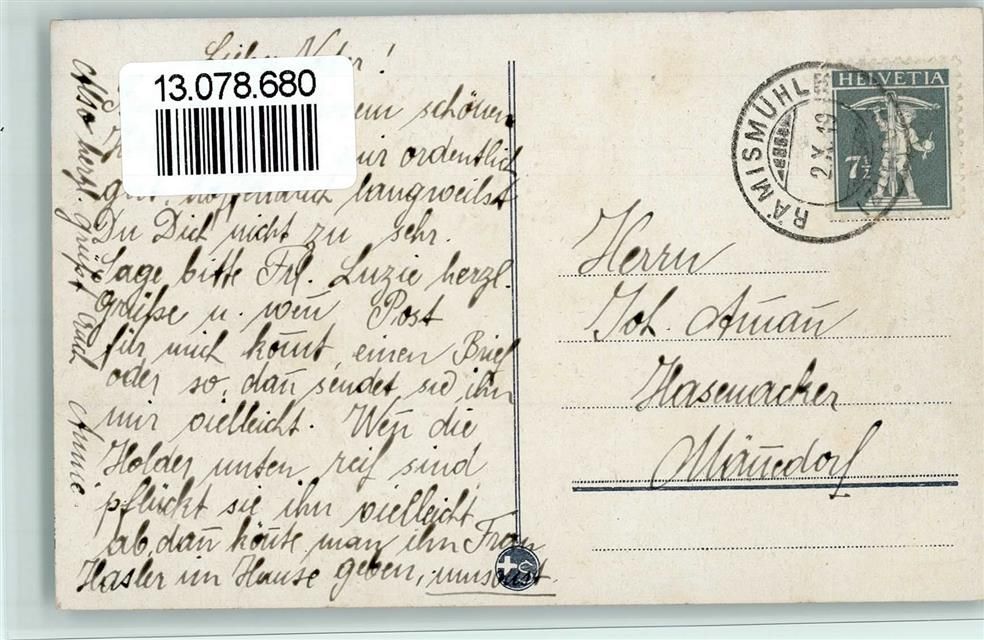 13.078.680
schönen
ordentlich
langweilst
Du Dich nicht zu sehr.
Sage bitte Frl. Luzie herzl.
Grüße u. wen̄ Post
für mich kom̄t, einen Brief
oder so, dan̄ sendet sie ihn
mir vielleicht. Wen̄ die
Holder unten reif sind,
pflückt sie ihn vielleicht
ab, dan̄ kön̄te man ihn Frau
Hasler im Hause geben, umsonst.
Also herzl. grüßt Euch Annie
RÄMISMÜHLE
2.X.19
HELVETIA
7½
Herrn
Joh. Aman̄
Hasenacker
Män̄edorf